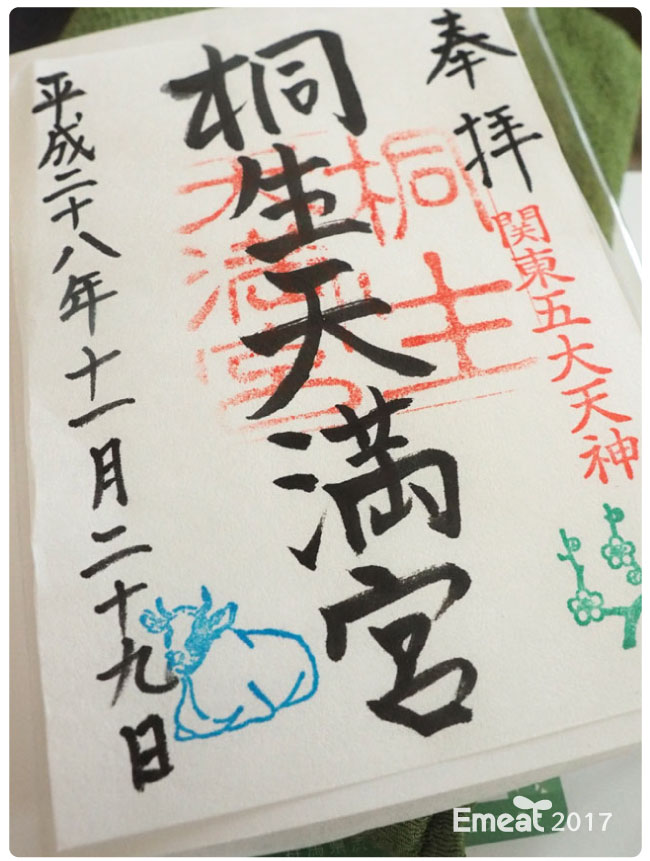 奉拝
関東五大天神
桐生天満宮
桐生
天満宮
平成二十八年十一月二十九日
Emeat 2017